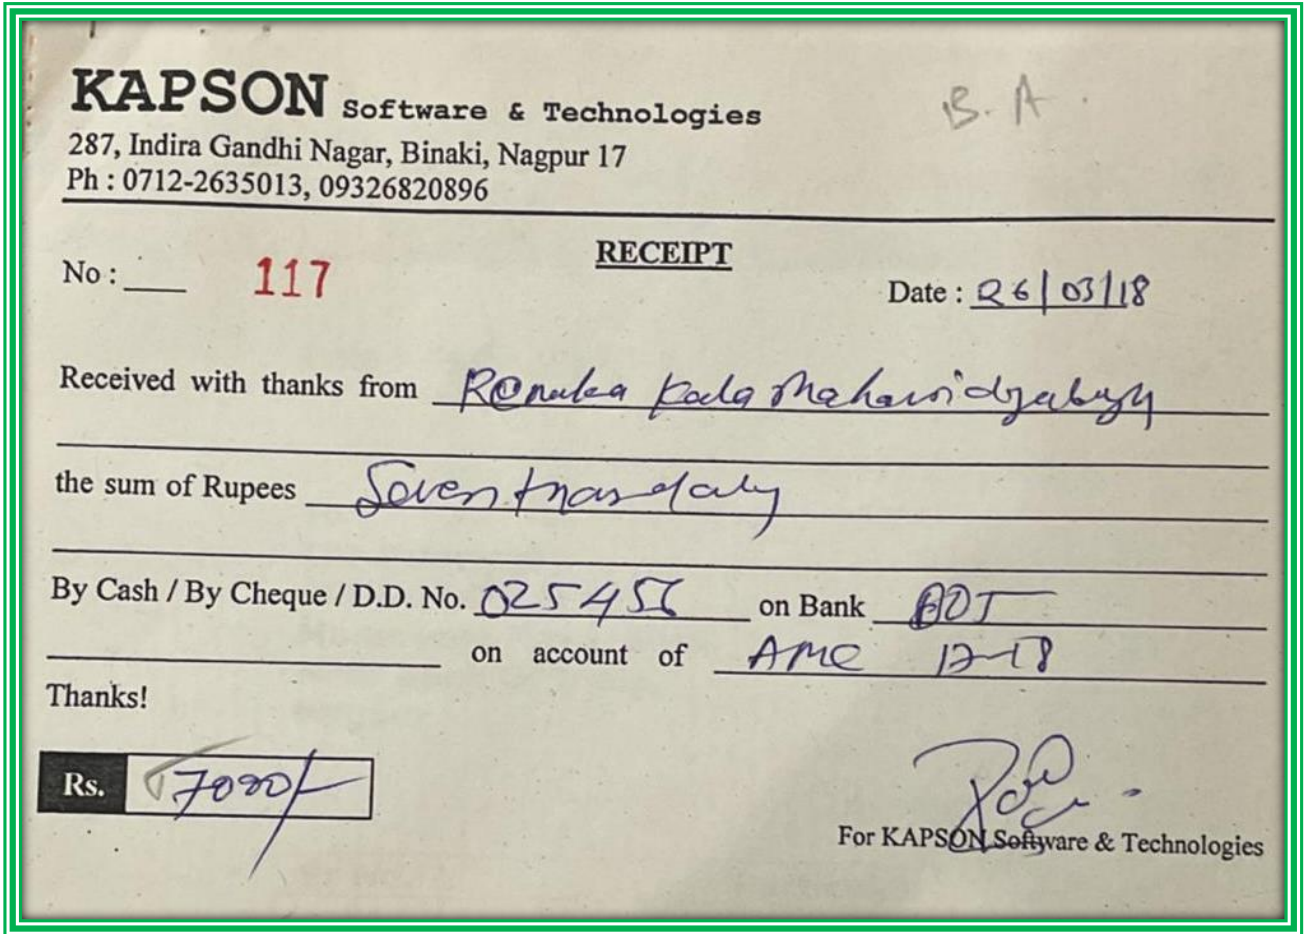 B. A.
KAPSON Software & Technologies
287, Indira Gandhi Nagar, Binaki, Nagpur 17
Ph : 0712-2635013, 09326820896
RECEIPT
No : 117
Date : 26/03/18
Received with thanks from Renuka Kala Mahavidyalaya
the sum of Rupees Seven
By Cash / By Cheque / D.D. No. 025456 on Bank
on account of AMC 17-18
Thanks!
Rs. 7000/-
For KAPSON Software & Technologies